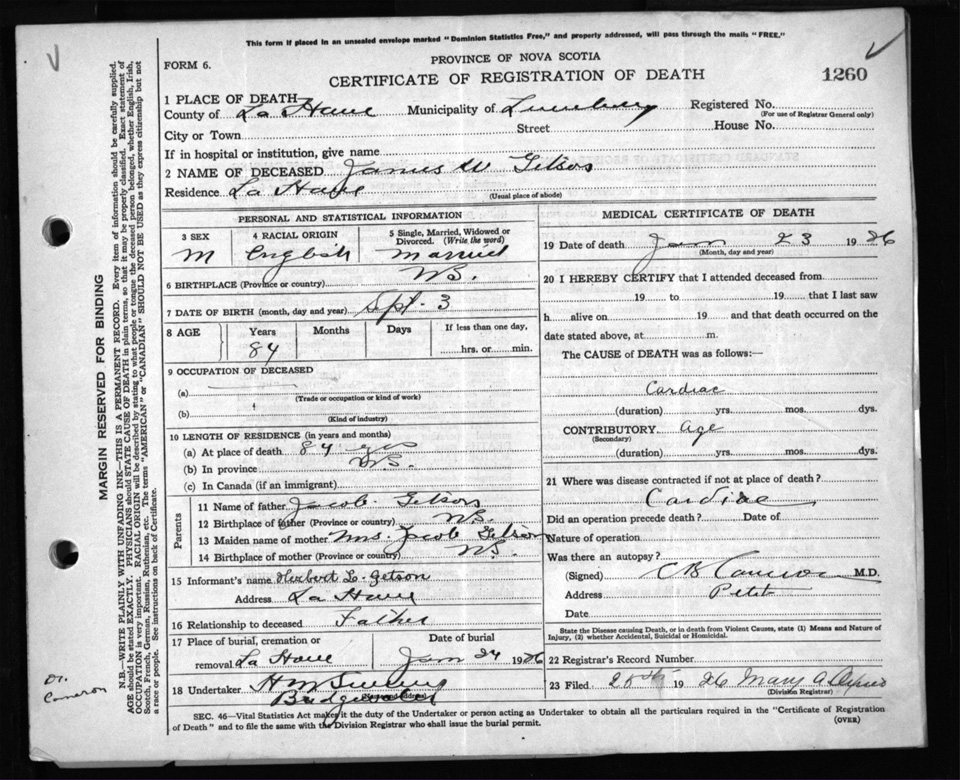 This form if placed in an unsealed envelope marked "Dominion Statistics Free," and properly addressed, will pass through the mails "FREE."
FORM 6.
PROVINCE OF NOVA SCOTIA
CERTIFICATE OF REGISTRATION OF DEATH
1260
1 PLACE OF DEATH
County of La Have Municipality of Lunenburg Registered No.
(For use of Registrar General only)
City or Town Street House No.
If in hospital or institution, give name
2 NAME OF DECEASED James W Getson
Residence La Have
(Usual place of abode)
PERSONAL AND STATISTICAL INFORMATION
3 SEX
M
4 RACIAL ORIGIN
English
5 Single, Married, Widowed or Divorced. (Write the word)
Married
6 BIRTHPLACE (Province or country) NS.
7 DATE OF BIRTH (month, day and year) Sept. 3
8 AGE
Years
84
Months
Days
If less than one day,
hrs. or min.
9 OCCUPATION OF DECEASED
(a)
(Trade or occupation or kind of work)
(b)
(Kind of industry)
10 LENGTH OF RESIDENCE (in years and months)
(a) At place of death 84 yrs
(b) In province NS.
(c) In Canada (if an immigrant)
Parents
11 Name of father Jacob Getson
12 Birthplace of father (Province or country) NS.
13 Maiden name of mother Mrs. Jacob Getson
14 Birthplace of mother (Province or country) NS.
15 Informant's name Herbert L. Getson
Address La Have
16 Relationship to deceased Father
17 Place of burial, cremation or
removal La Have
Date of burial
Jan 24 1926
18 Undertaker
Bridgewater
MEDICAL CERTIFICATE OF DEATH
19 Date of death Jan 23 1926
(Month, day and year)
20 I HEREBY CERTIFY that I attended deceased from
19 to 19 that I last saw
h alive on 19 and that death occurred on the
date stated above, at m.
The CAUSE of DEATH was as follows:—
Cardiac
(duration) yrs. mos. dys.
CONTRIBUTORY. age
(Secondary)
(duration) yrs. mos. dys.
21 Where was disease contracted if not at place of death?
Cardiac
Did an operation precede death? Date of
Nature of operation
Was there an autopsy?
(Signed) C B Cameron M.D.
Address Petite
Date
State the Disease causing Death, or in death from Violent Causes, state (1) Means and Nature of
Injury, (2) whether Accidental, Suicidal or Homicidal.
22 Registrar's Record Number
23 Filed 28th 1926 Mary A
(Division Registrar)
SEC. 46—Vital Statistics Act makes it the duty of the Undertaker or person acting as Undertaker to obtain all the particulars required in the "Certificate of Registration
of Death" and to file the same with the Division Registrar who shall issue the burial permit.
(OVER)
MARGIN RESERVED FOR BINDING
N.B.—WRITE PLAINLY WITH UNFADING INK—THIS IS A PERMANENT RECORD. Every item of information should be carefully supplied.
AGE should be stated EXACTLY. PHYSICIANS should STATE CAUSE OF DEATH in plain terms, so that it may be properly classified. Exact statement of
OCCUPATION is very important. RACIAL ORIGIN will be described by stating to what people or tongue the deceased person belonged, whether English, Irish,
Scotch, French, German, Russian, Ruthenian, etc. The terms "AMERICAN" or "CANADIAN" SHOULD NOT BE USED as they express citizenship but not
a race or people. See instructions on back of Certificate.
Dr.
Cameron